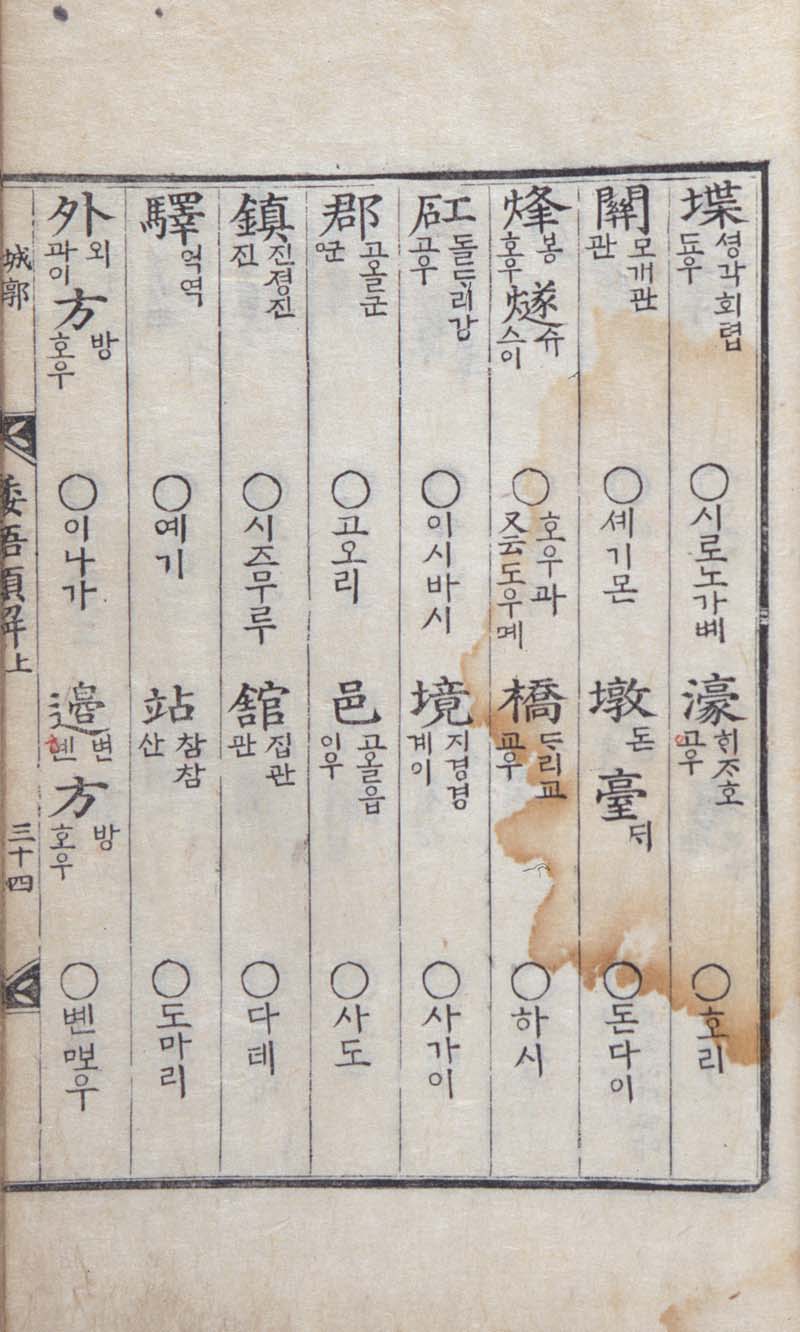 堞 셩각회렵 됴우 ○시로노가볘 濠 ᄒᆡᄌᆞ호 고우 ○호리
關 모개관 관 ○셰기몬 墩 돈 臺 ᄃᆡ ○돈다이
烽 봉 호우 燧 슈 스이 ○호우과 又云도우몌 橋 ᄃᆞ리교 교우 ○하시
矼 돌ᄃᆞ리강 고우 ○이시바시 境 지경경 계이 ○사가이
郡 고올군 ○고오리 邑 고올읍 이우 ○사도
鎮 진졍진 진 ○시즈무루 舘 집관 관 ○다테
驛 억역 ○예기 站 참참 산 ○도마리
外 외 과이 方 방 호우 ○이나가 邊 변 볜 方 방 호우 ○볜
城郭 倭語類解上 三十四